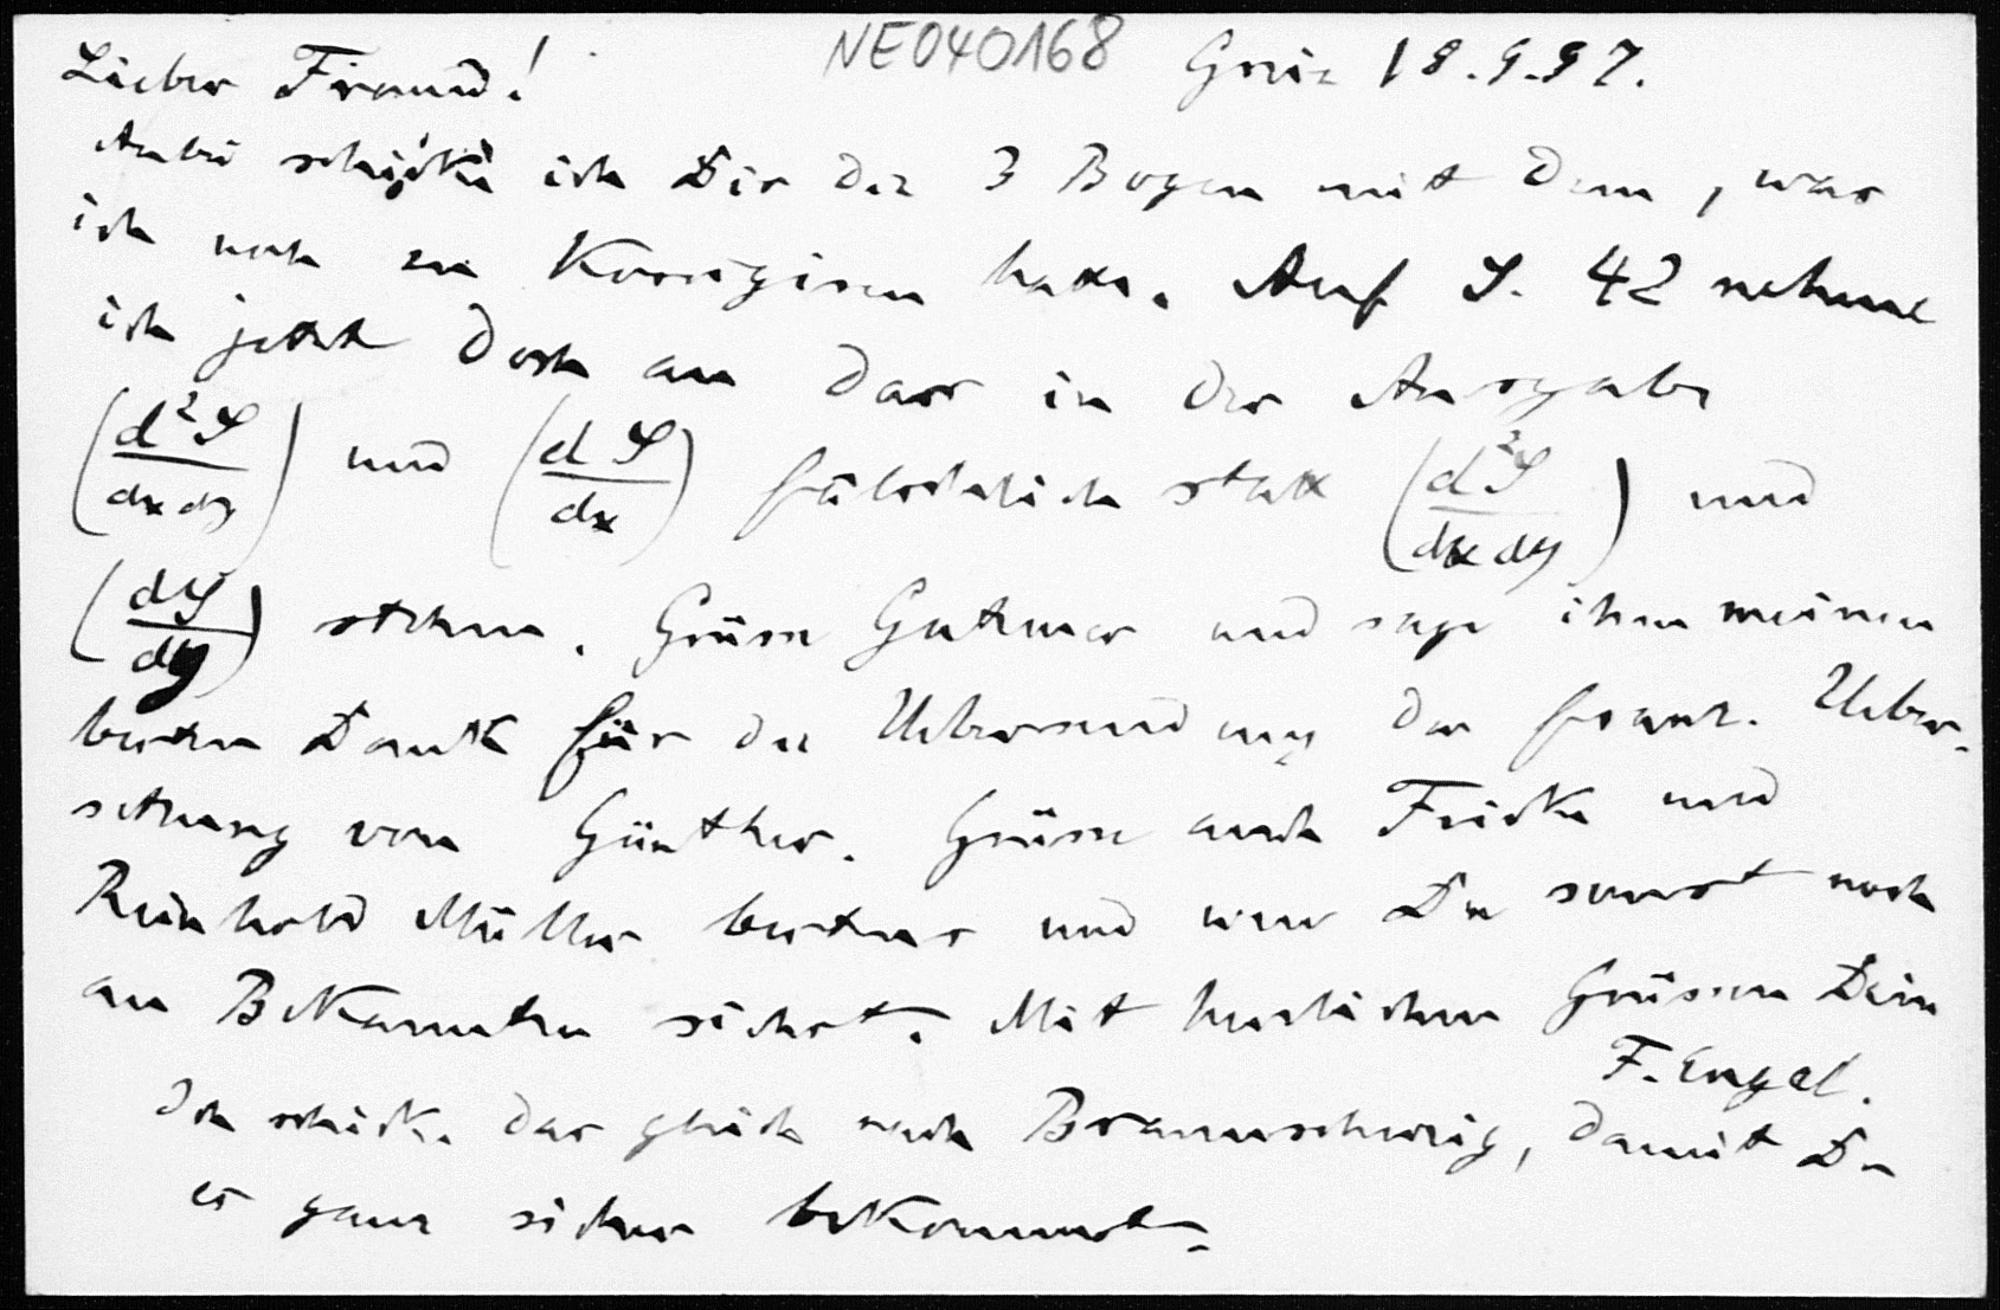 NE040168
Lieber Freund! Greiz 18.9.97.
Anbei schicke ich Dir die 3 Bogen mit dem, was
ich noch zu korrigiren hatte. Auf S. 42 nehme
ich jetzt doch an dass in der Ausgabe
(d²S/dxdy) und (dS/dx) fälschlich statt (d²S/dxdy) und
(dS/dy) stehen. Grüsse Gutzmer und sage ihm meinen
besten Dank für die Uebersendung der franz. Ueber-
setzung von Günther. Grüsse auch Fricke und
Reinhold Müller bestens und wen Du sonst noch
an Bekannten siehst. Mit herzlichen Grüssen Dein
F. Engel.
Ich schicke das gleich nach Braunschweig, damit Du
es ganz sicher bekommst.